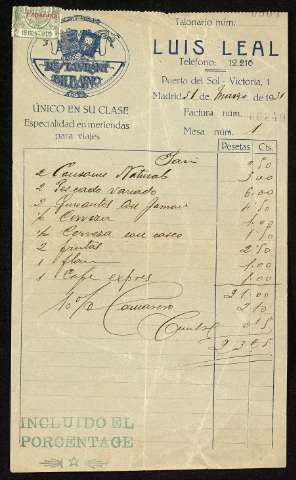 Talonario núm.
RESTAURANT
BILBAINO
LUIS LEAL
Teléfono: 12.216
Puerta del Sol - Victoria, 1
Madrid 31 de marzo de 1931
ÚNICO EN SU CLASE
Especialidad en meriendas
para viajes
Factura núm.
Mesa núm. 1
Pesetas Cts.
Pan 0,50
2 Consomes Natural 3,00
2 Pescado variado 6,00
2 Guisantes con Jamon 4,50
½ Cerveza 1,00
½ Cerveza con casco 1,50
2 frutas 2,50
1 flan 1,00
1 Cafe expres 1,00
21,00
10% Camarero 2,10
Timbre 0,15
23,25
INCLUIDO EL
PORCENTAGE